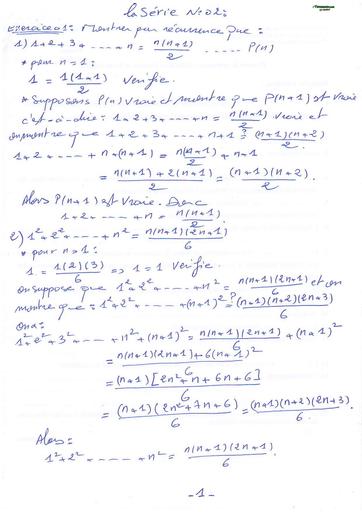 la Série N:02:
Exercice 01: Montrer par récurrence que :
1) 1+2+3+-----+n = n(n+1)/2 ..... P(n)
* pour n=1:
1 = 1(1+1)/2 Verifie.
* Supposons P(n) vraie et montre que P(n+1) est vraie
c'est-à-dire: 1+2+3+----+n = n(n+1)/2 vraie et
on montre que 1+2+3+----+n+1 ?= (n+1)(n+2)/2.
1+2+----+n+(n+1) = n(n+1)/2 + n+1
= n(n+1)+2(n+1)/2 = (n+1)(n+2)/2.
Alors P(n+1) est vraie. Donc
1+2----+n = n(n+1)/2.
2) 1²+2²+----+n² = n(n+1)(2n+1)/6
* pour n=1:
1 = 1(2)(3)/6 => 1=1 Verifie.
on suppose que 1²+2²+----+n² = n(n+1)(2n+1)/6 et on
montre que: 1²+2²+----+(n+1)² ?= (n+1)(n+2)(2n+3)/6
on a:
1²+2²+3²+----+n²+(n+1)² = n(n+1)(2n+1)/6 + (n+1)²
= n(n+1)(2n+1)+6(n+1)²/6
= (n+1)[2n²+n+6n+6]/6
= (n+1)(2n²+7n+6)/6 = (n+1)(n+2)(2n+3)/6.
Alors:
1²+2²-----+n² = n(n+1)(2n+1)/6.
-1-